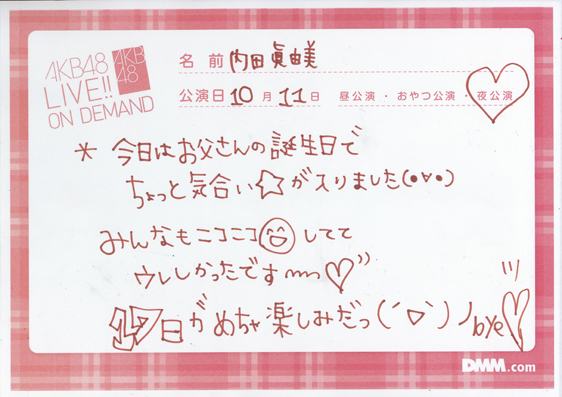 AKB48
LIVE!!
ON DEMAND
AKB
48
名 前 内田眞由美
公演日 10 月 11 日 昼公演 ・ おやつ公演 ・ 夜公演
* 今日はお父さんの誕生日で
ちょっと気合い☆が入りました(•∀•)
みんなもニコニコしてて
ウレしかったです♡
17日がめちゃ楽しみだっ(´▽`)ノbye♡
DMM.com